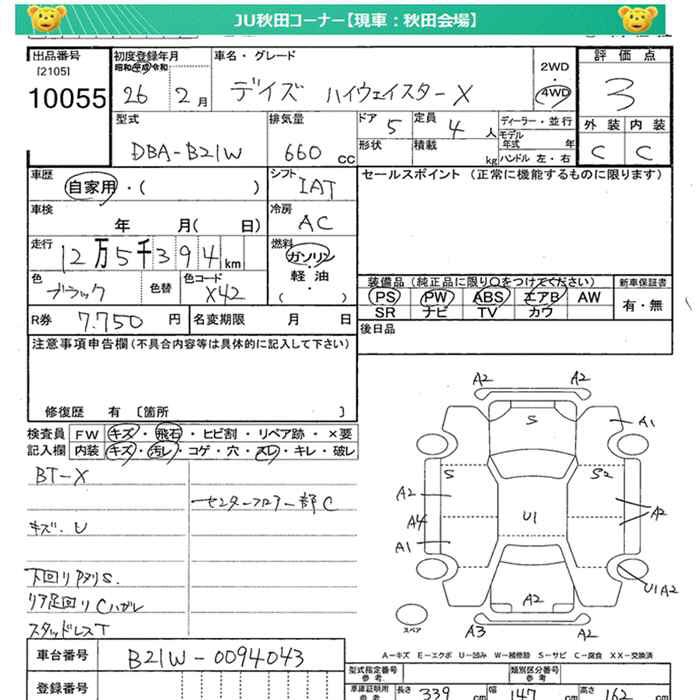 JU秋田コーナー【現車：秋田会場】
出品番号 初度登録年月 車名・グレード 評価点
[2105] 昭和 平成 令和 2WD
10055 26 2月 デイズ ハイウェイスターX ・ 3
4WD
型式 排気量 ドア 5 定員 4人 ディーラー・並行 外装 内装
DBA-B21W 660 CC 形状 積載 kg モデル年式 年 C C
ハンドル 左・右
車歴 シフト セールスポイント（正常に機能するものに限ります）
自家用・( ) IAT
車検 冷房
年 月( 日) AC
走行 燃料
12万5千394km ガソリン
色 色替 色コード 軽・油 装備品（純正品に限り○をつけてください） 新車保証書
ブラック X42 ( ・ ) PS PW ABS エアB AW 有・無
SR ナビ TV カワ
R券 7.750円 名変期限 月 日 後日品
注意事項申告欄（不具合内容等は具体的に記入して下さい）
修復歴 有 〔箇所 〕
検査員 FW キズ・飛石・ヒビ割・リペア跡・×要
記入欄 内装 キズ・汚レ・コゲ・穴・スレ・キレ・破レ
BT-X
センターフロアー部C
キズ.U
下回りアタリS.
リア足回りCハガレ
スタッドレスT
A2 A2
S A1
S S2
A2 A2
A4 U1
A1
U1A2
A2
スペア A3 A2
A－キズ E－エクボ U－凹み W－補修跡 S－サビ C－腐食 XX－交換済
車台番号 B21W-0094043
登録番号
型式指定番号 参考 類別区分番号 参考
車庫証明用 参考 長さ 339 cm 幅 147 cm 高さ 162 cm